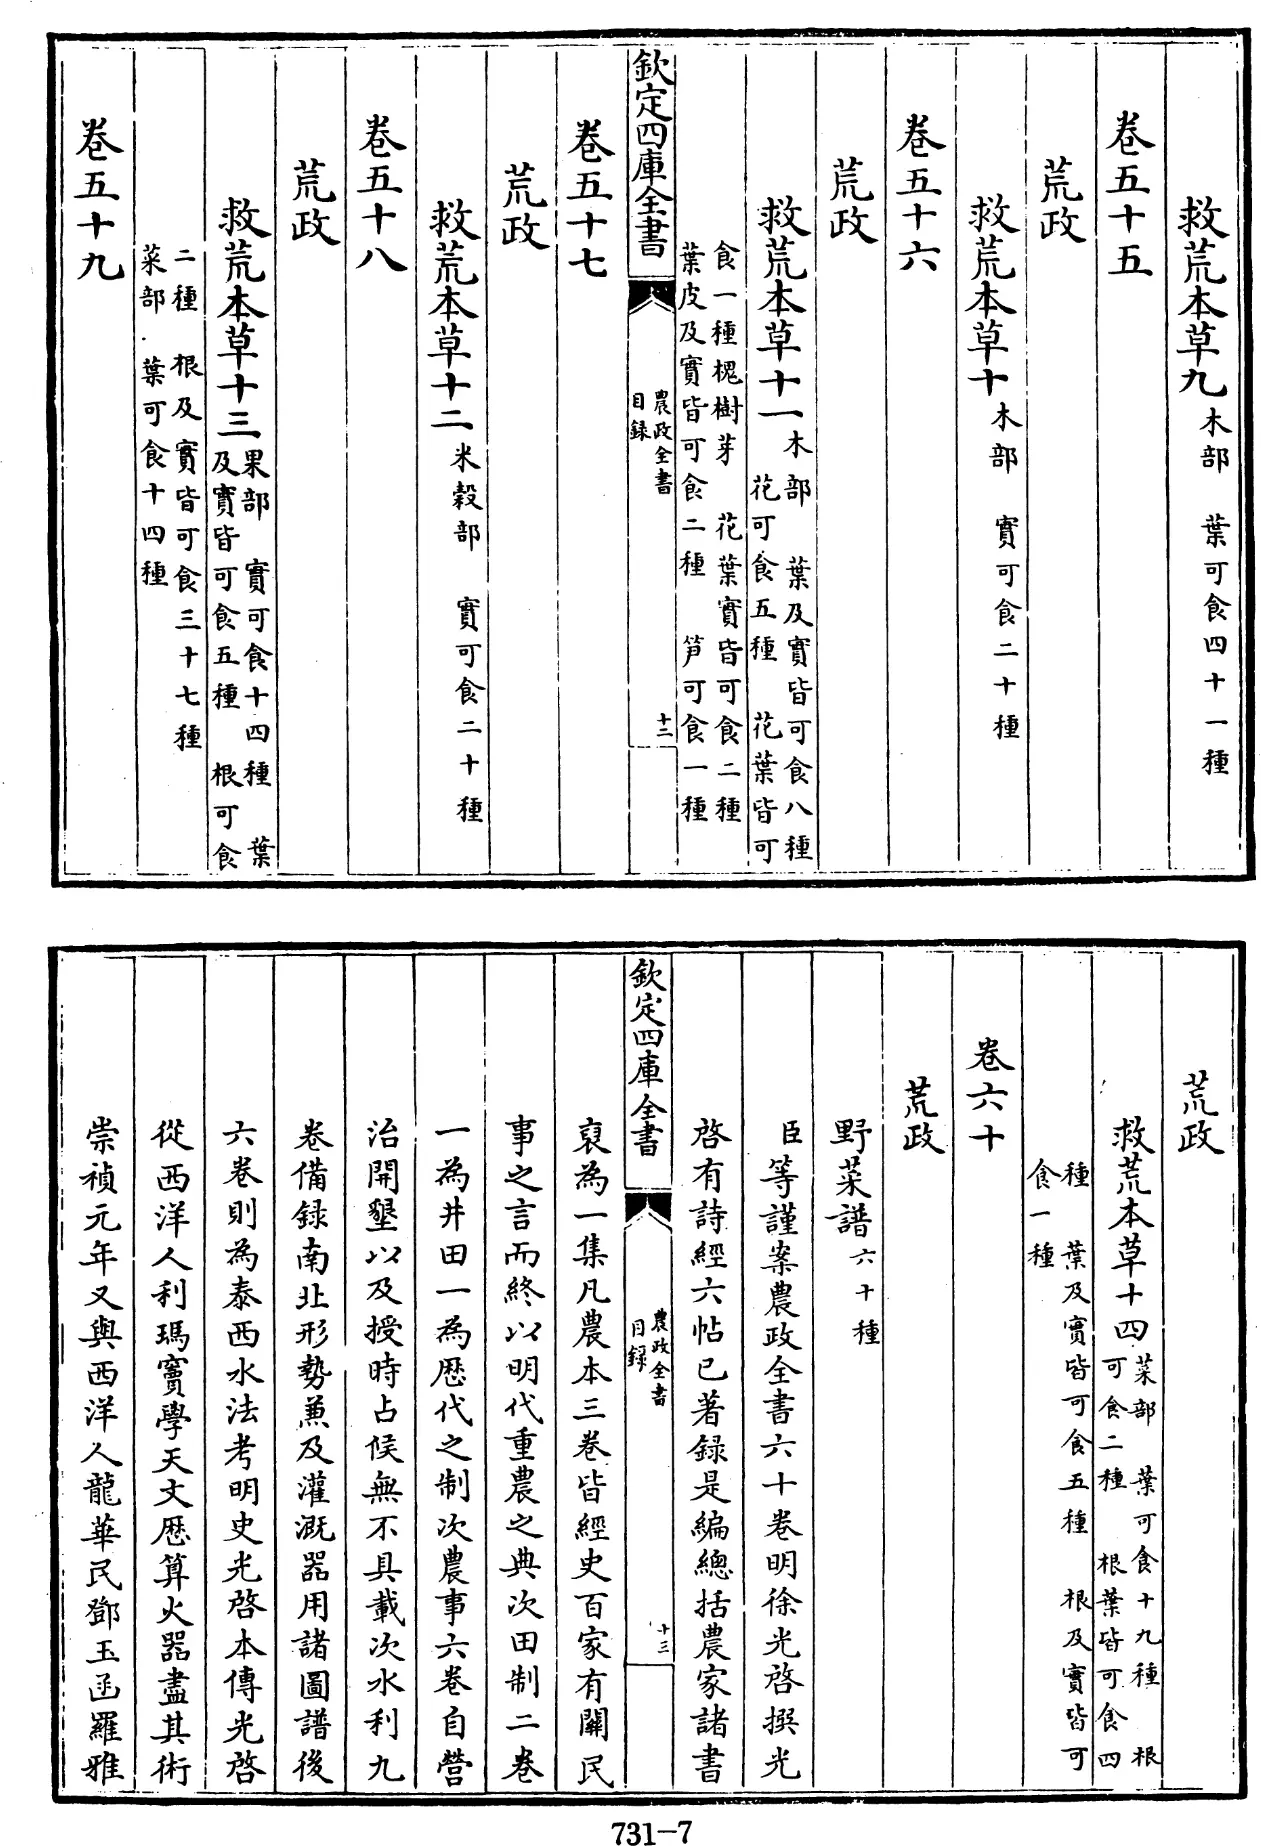 救荒本草九木部 葉可食四十一種
卷五十五
荒政
救荒本草十木部 實可食二十種
卷五十六
荒政
救荒本草十一木部 葉及實皆可食八種
花可食五種 花葉皆可
食一種槐樹芽 花葉實皆可食二種
葉皮及實皆可食二種 笋可食一種
欽定四庫全書
農政全書
目録
十三
卷五十七
荒政
救荒本草十二米穀部 實可食二十種
卷五十八
荒政
救荒本草十三果部 實可食十四種 葉
及實皆可食五種 根可食
二種 根及實皆可食三十七種
菜部 葉可食十四種
卷五十九
荒政
救荒本草十四菜部 葉可食十九種 根
可食二種 根葉皆可食四
種 葉及實皆可食五種 根及實皆可
食一種
卷六十
荒政
野菜譜六十種
臣等謹案農政全書六十卷明徐光啓撰光
啓有詩經六帖已著録是編總括農家諸書
裒為一集凡農本三卷皆經史百家有關民
欽定四庫全書
農政全書
目録
十三
事之言而終以明代重農之典次田制二卷
一為井田一為歷代之制次農事六卷自營
治開墾以及授時占候無不具載次水利九
卷備録南北形勢兼及灌溉器用諸圖譜後
六卷則為泰西水法考明史光啓本傳光啓
從西洋人利瑪竇學天文歷算火器盡其術
崇禎元年又與西洋人龍華民鄧玉函羅雅
731-7